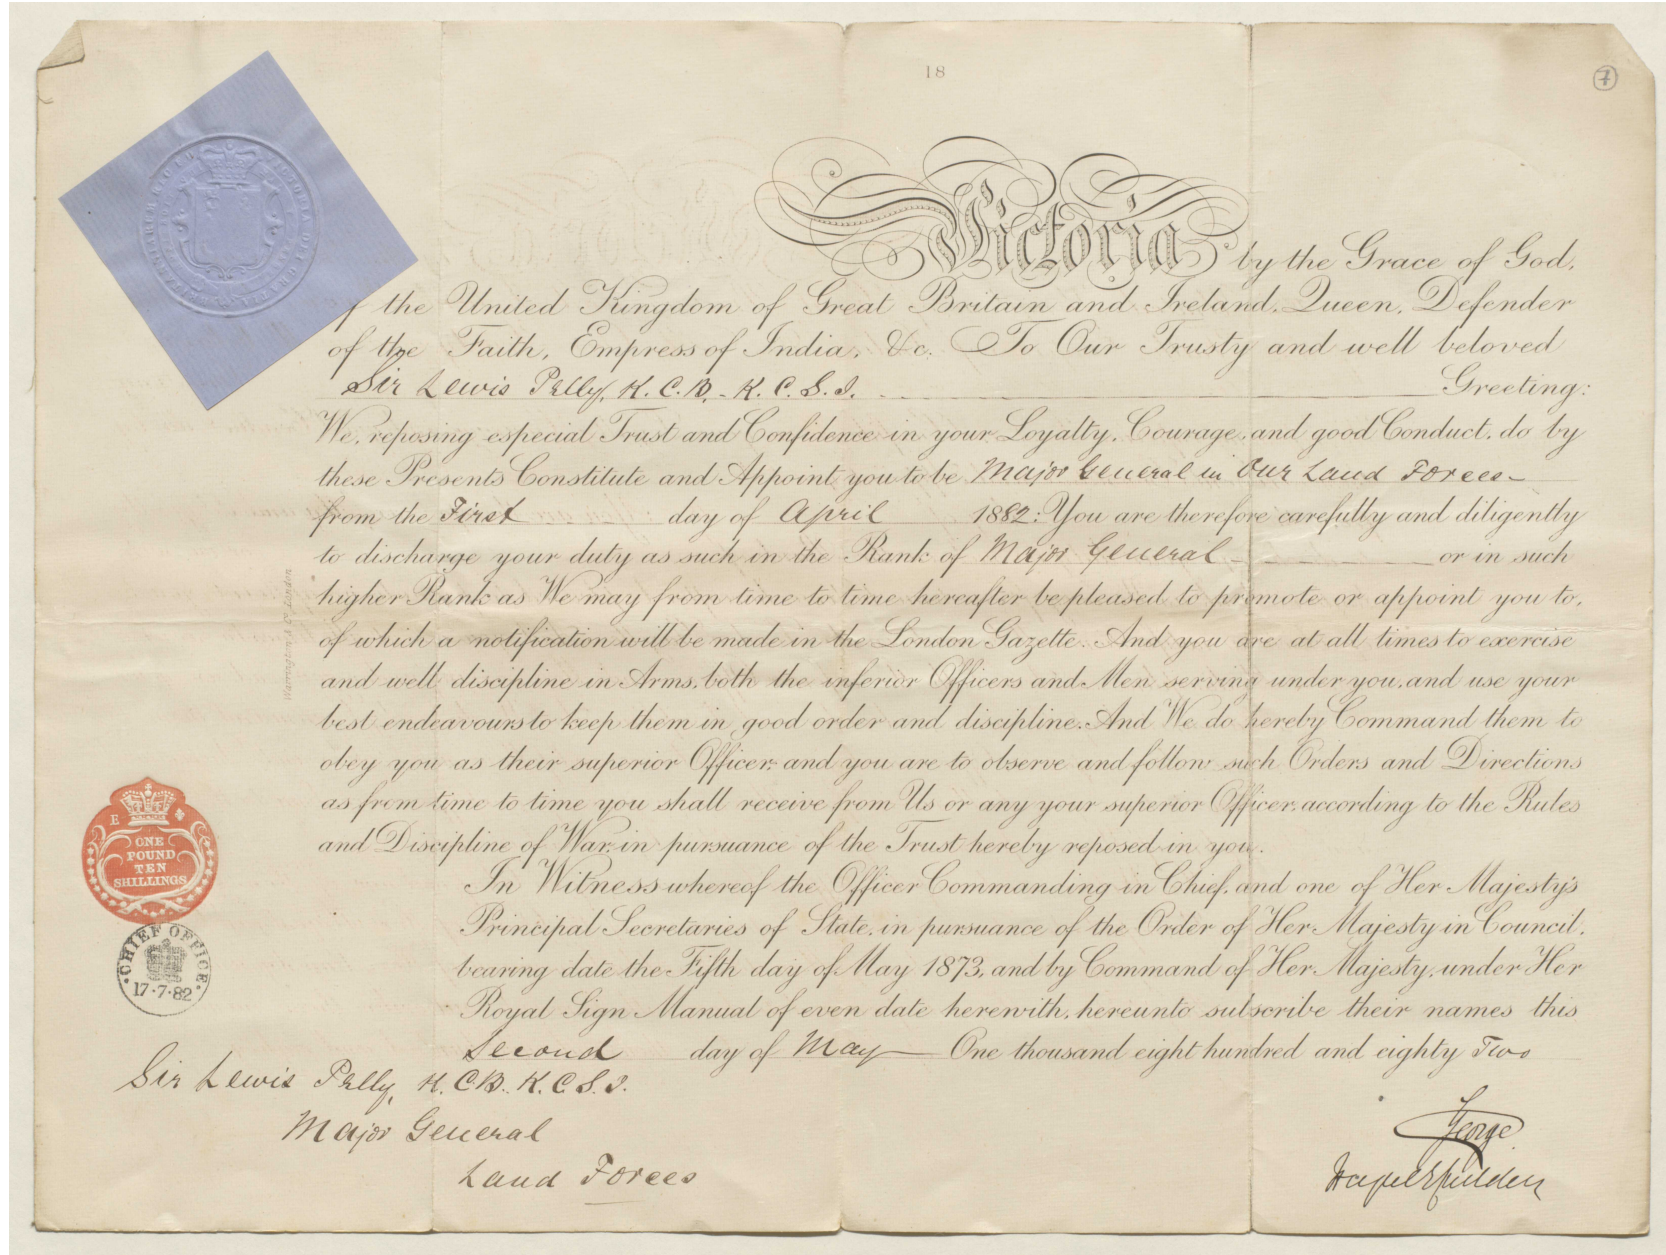 18
7
Victoria by the Grace of God,
of the United Kingdom of Great Britain and Ireland, Queen, Defender
of the Faith, Empress of India, &c. To Our Trusty and well beloved
Sir Lewis Pelly, K.C.B. - K.C.S.I. Greeting:
We, reposing especial Trust and Confidence in your Loyalty, Courage, and good Conduct, do by
these Presents Constitute and Appoint you to be Major General in Our Land Forces -
from the First day of April 1882: You are therefore carefully and diligently
to discharge your duty as such in the Rank of Major General or in such
higher Rank as We may from time to time hereafter be pleased to promote or appoint you to,
of which a notification will be made in the London Gazette. And you are at all times to exercise
and well discipline in Arms, both the inferior Officers and Men serving under you, and use your
best endeavours to keep them in good order and discipline. And We do hereby Command them to
obey you as their superior Officer: and you are to observe and follow such Orders and Directions
as from time to time you shall receive from Us or any your superior Officer, according to the Rules
and Discipline of War, in pursuance of the Trust hereby reposed in you.
In Witness whereof the Officer Commanding in Chief, and one of Her Majesty's
Principal Secretaries of State, in pursuance of the Order of Her Majesty in Council,
bearing date the Fifth day of May 1873, and by Command of Her Majesty, under Her
Royal Sign Manual of even date herewith, hereunto subscribe their names this
Second day of May One thousand eight hundred and eighty Two
E
ONE
POUND
TEN
SHILLINGS
CHIEF OFFICE
17·7·82
Sir Lewis Pelly, K.C.B. K.C.S.I.
Major General
Land Forces
George